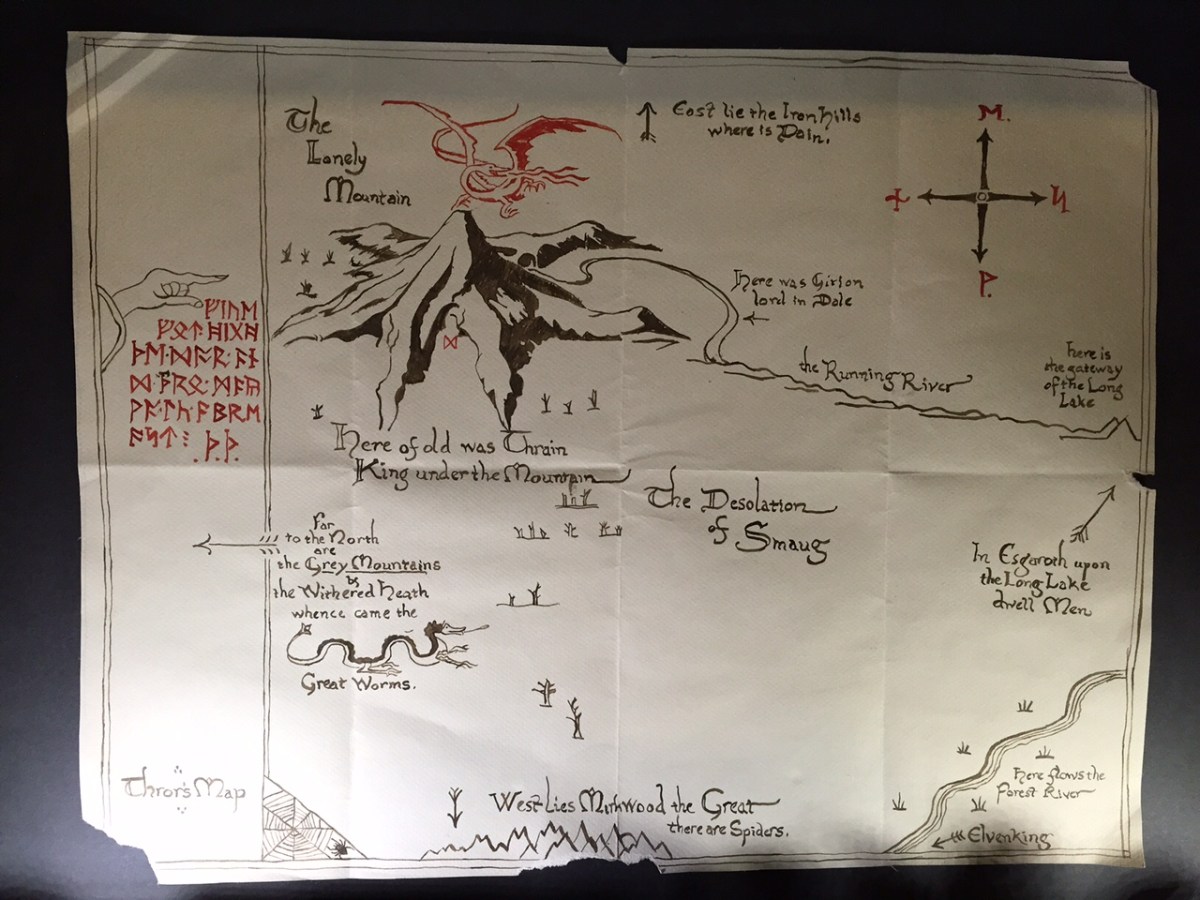 The
Lonely
Mountain
East lie the Iron Hills
where is Dain.
ᛖ.
ᚾ
ᛋ
ᚹ.
Here was Girion
lord in Dale
the Running River
here is
the gateway
of the Long
Lake
ᚠᛁᚢᛖ
ᚠᚩᛏ·ᚻᛁᚷᚻ
ᚦᛖ·ᛞᚩᚱ·ᚪᚾ
ᚹᚪᛚᚳ·ᚪᛒᚱᛖ
ᚪᛋᛏ⁝
.ᚦ.ᚦ.
ᛞ
Here of old was Thrain
King under the Mountain
The Desolation
of Smaug
Far
to the North
are
the Grey Mountains
&
the Withered Heath
whence came the
Great Worms.
In Esgaroth upon
the Long Lake
dwell Men
Here flows the
Forest River
Elvenking
Thror's Map
West lies Mirkwood the Great
there are Spiders.